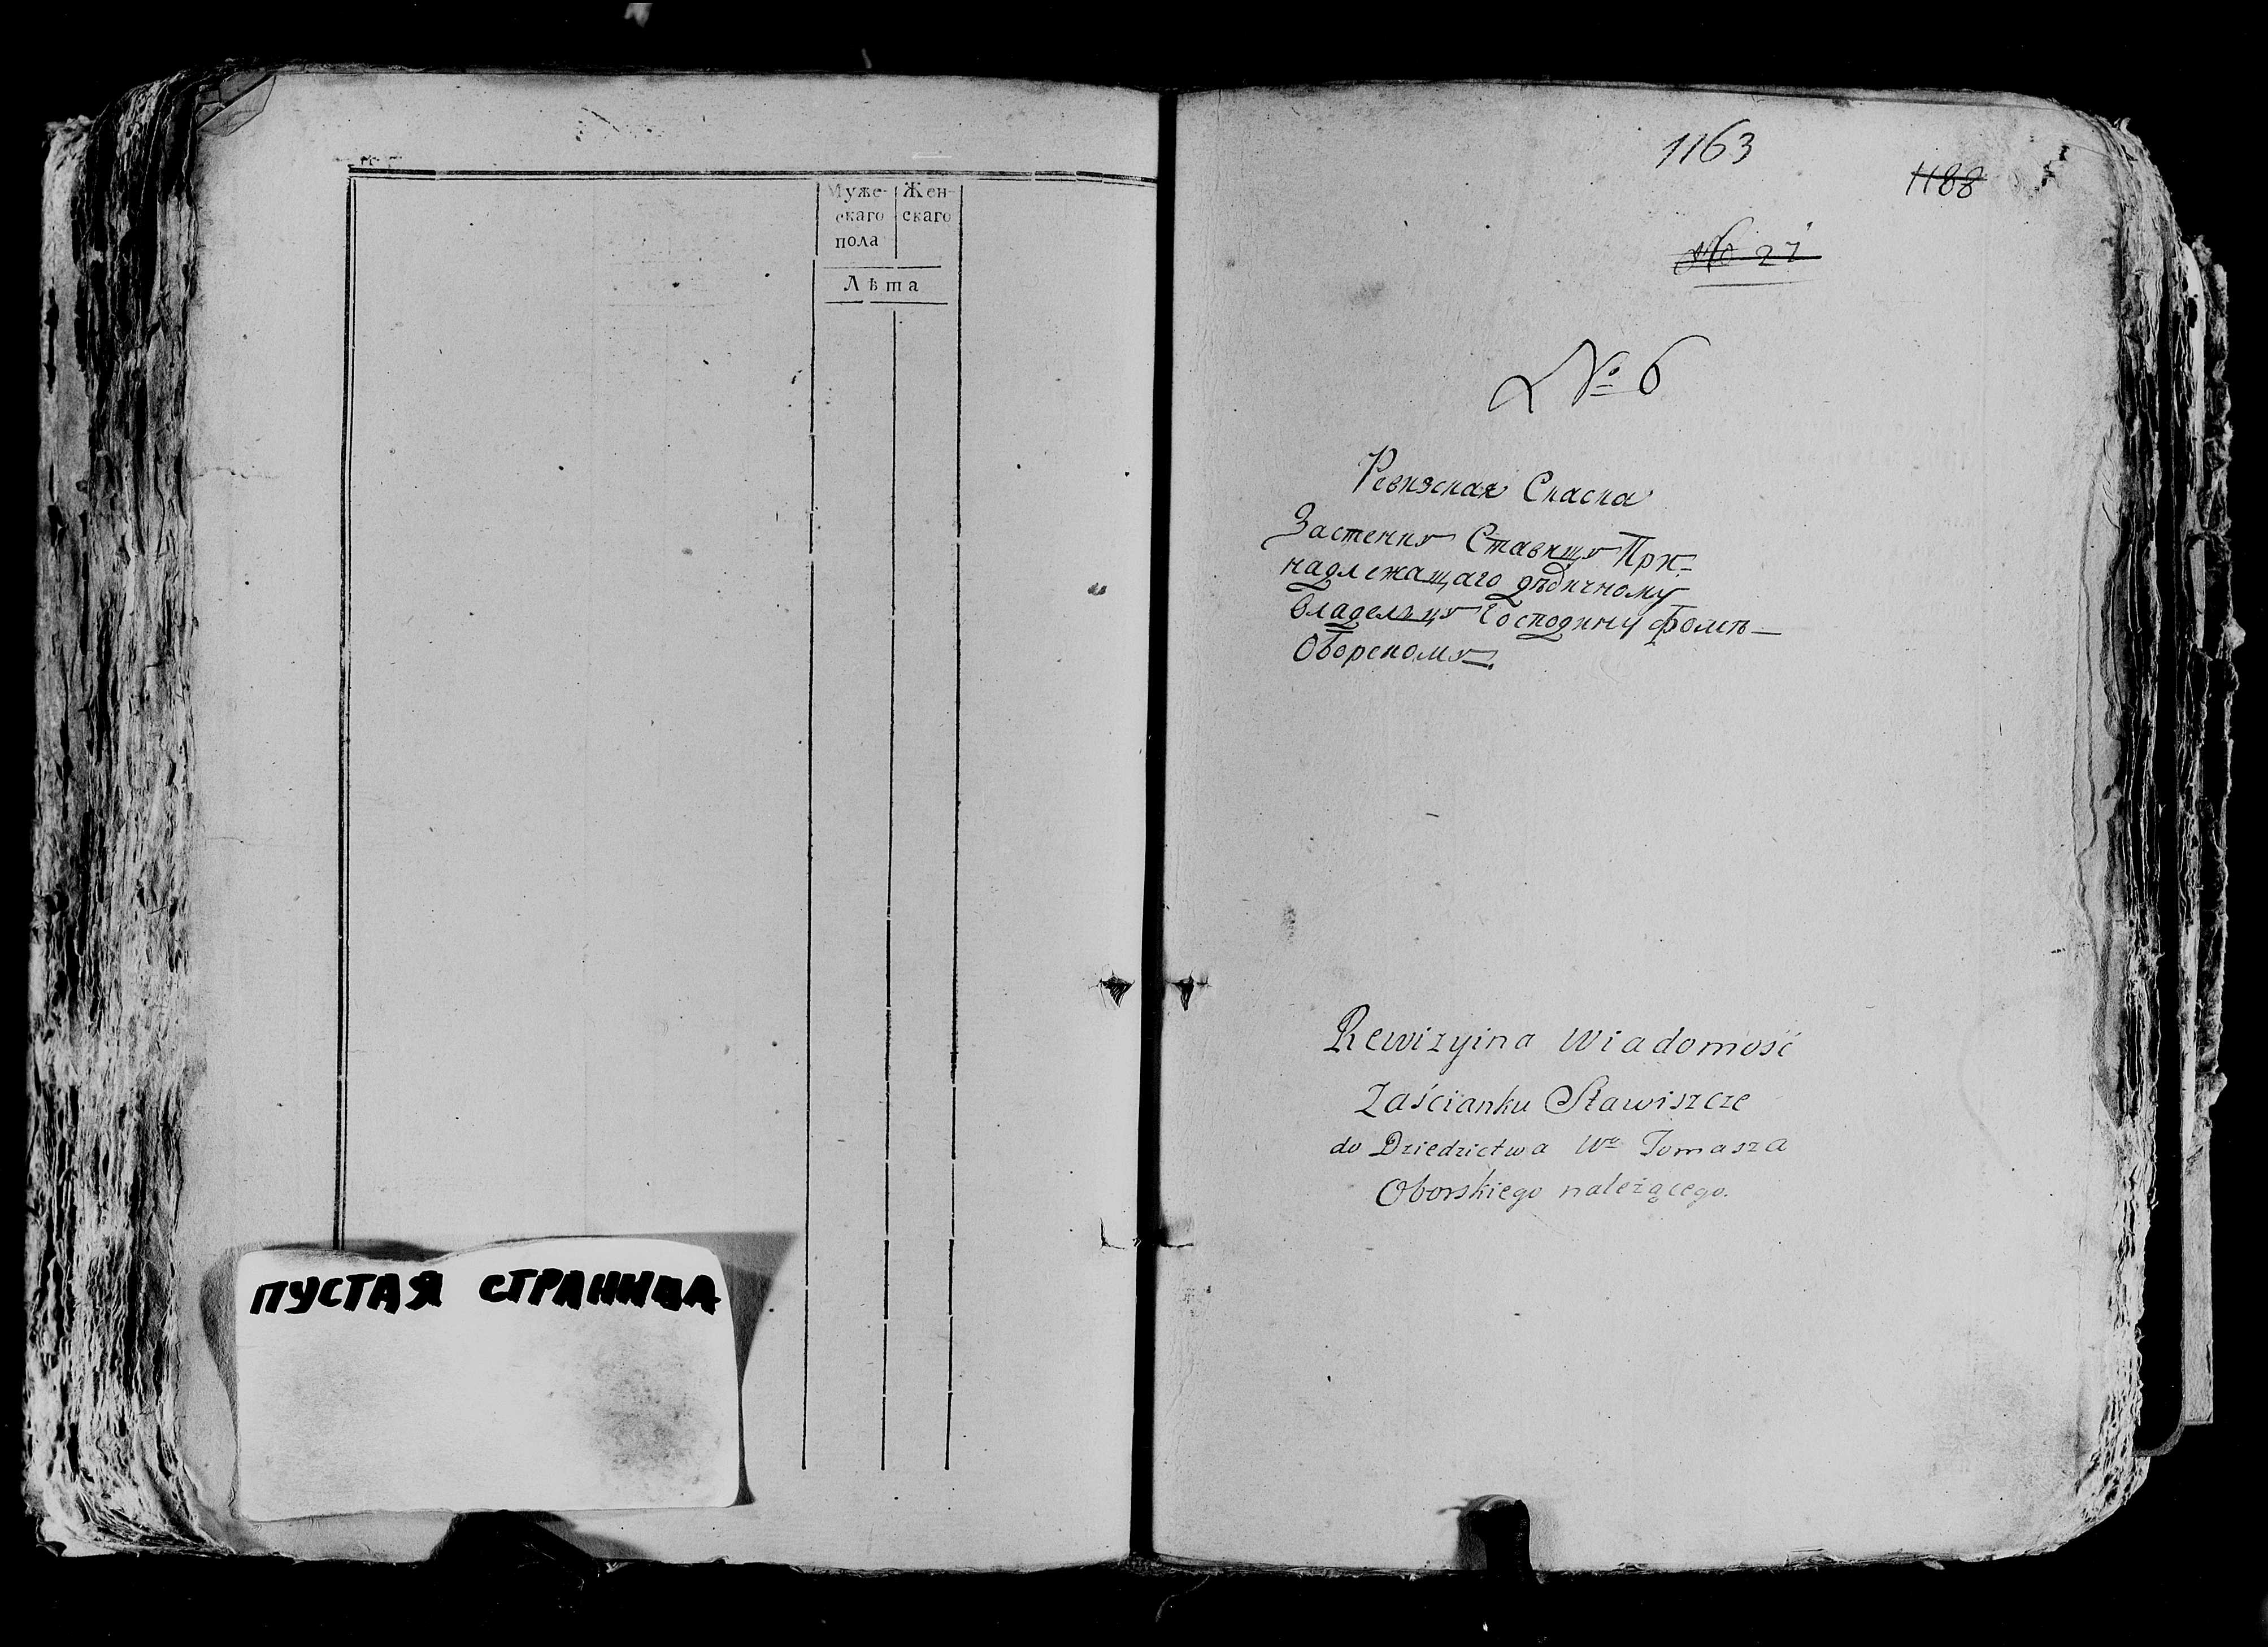 Муже-
скаго
пола
Жен-
скаго
Лѣта
ПУСТАЯ СТРАНИЦА
1163
1188
№ 27
№ 6
Ревизская Сказка
Застенку Ставищу При-
надлежащаго дѣдичному
владельцу Господину Фомѣ
Оборскому.
Rewizyina Wiadomość
Zaścianku Stawiszcze
do Dziedzictwa Wo Tomasza
Oborskiego należącego.